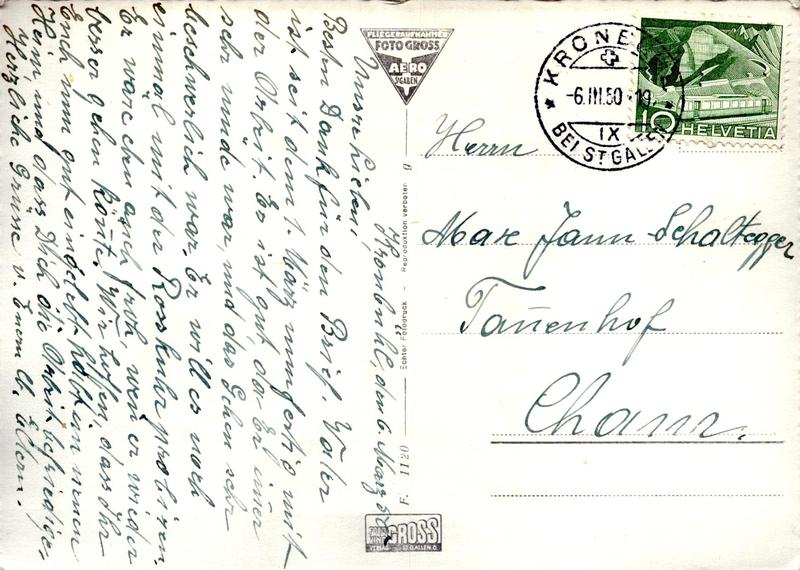 Kronbühl, den 6. März 50
Unsre Lieben,
Besten Dank für den Brief. Vater
ist seit dem 1. März nun fertig mit
der Arbeit. Er ist gut, da Er immer
sehr müde war, und das Gehen sehr
beschwerlich war. Er will es noch
einmal mit der Rosskur probieren.
Er wäre eben auch froh, wen er wieder
besser gehen könt. Wir hoffen, dass Ihr
Euch nun gut eingelebt habt im neuen
Heim und dass Dich die Arbeit befriedige.
Herzliche Grüsse v. Euern lb. Eltern.
FLIEGERAUFNAHMEN
FOTO GROSS
AERO
ST.GALLEN
Echter Fotodruck - Reproduktion verboten g
F. 1120
GROSS
VERLAG ST.GALLEN O
KRONBÜHL
-6.III.50-19
IX
BEI ST GALLEN
10 HELVETIA
Herrn
Max Jann-Schaltegger
Tannenhof
Cham.